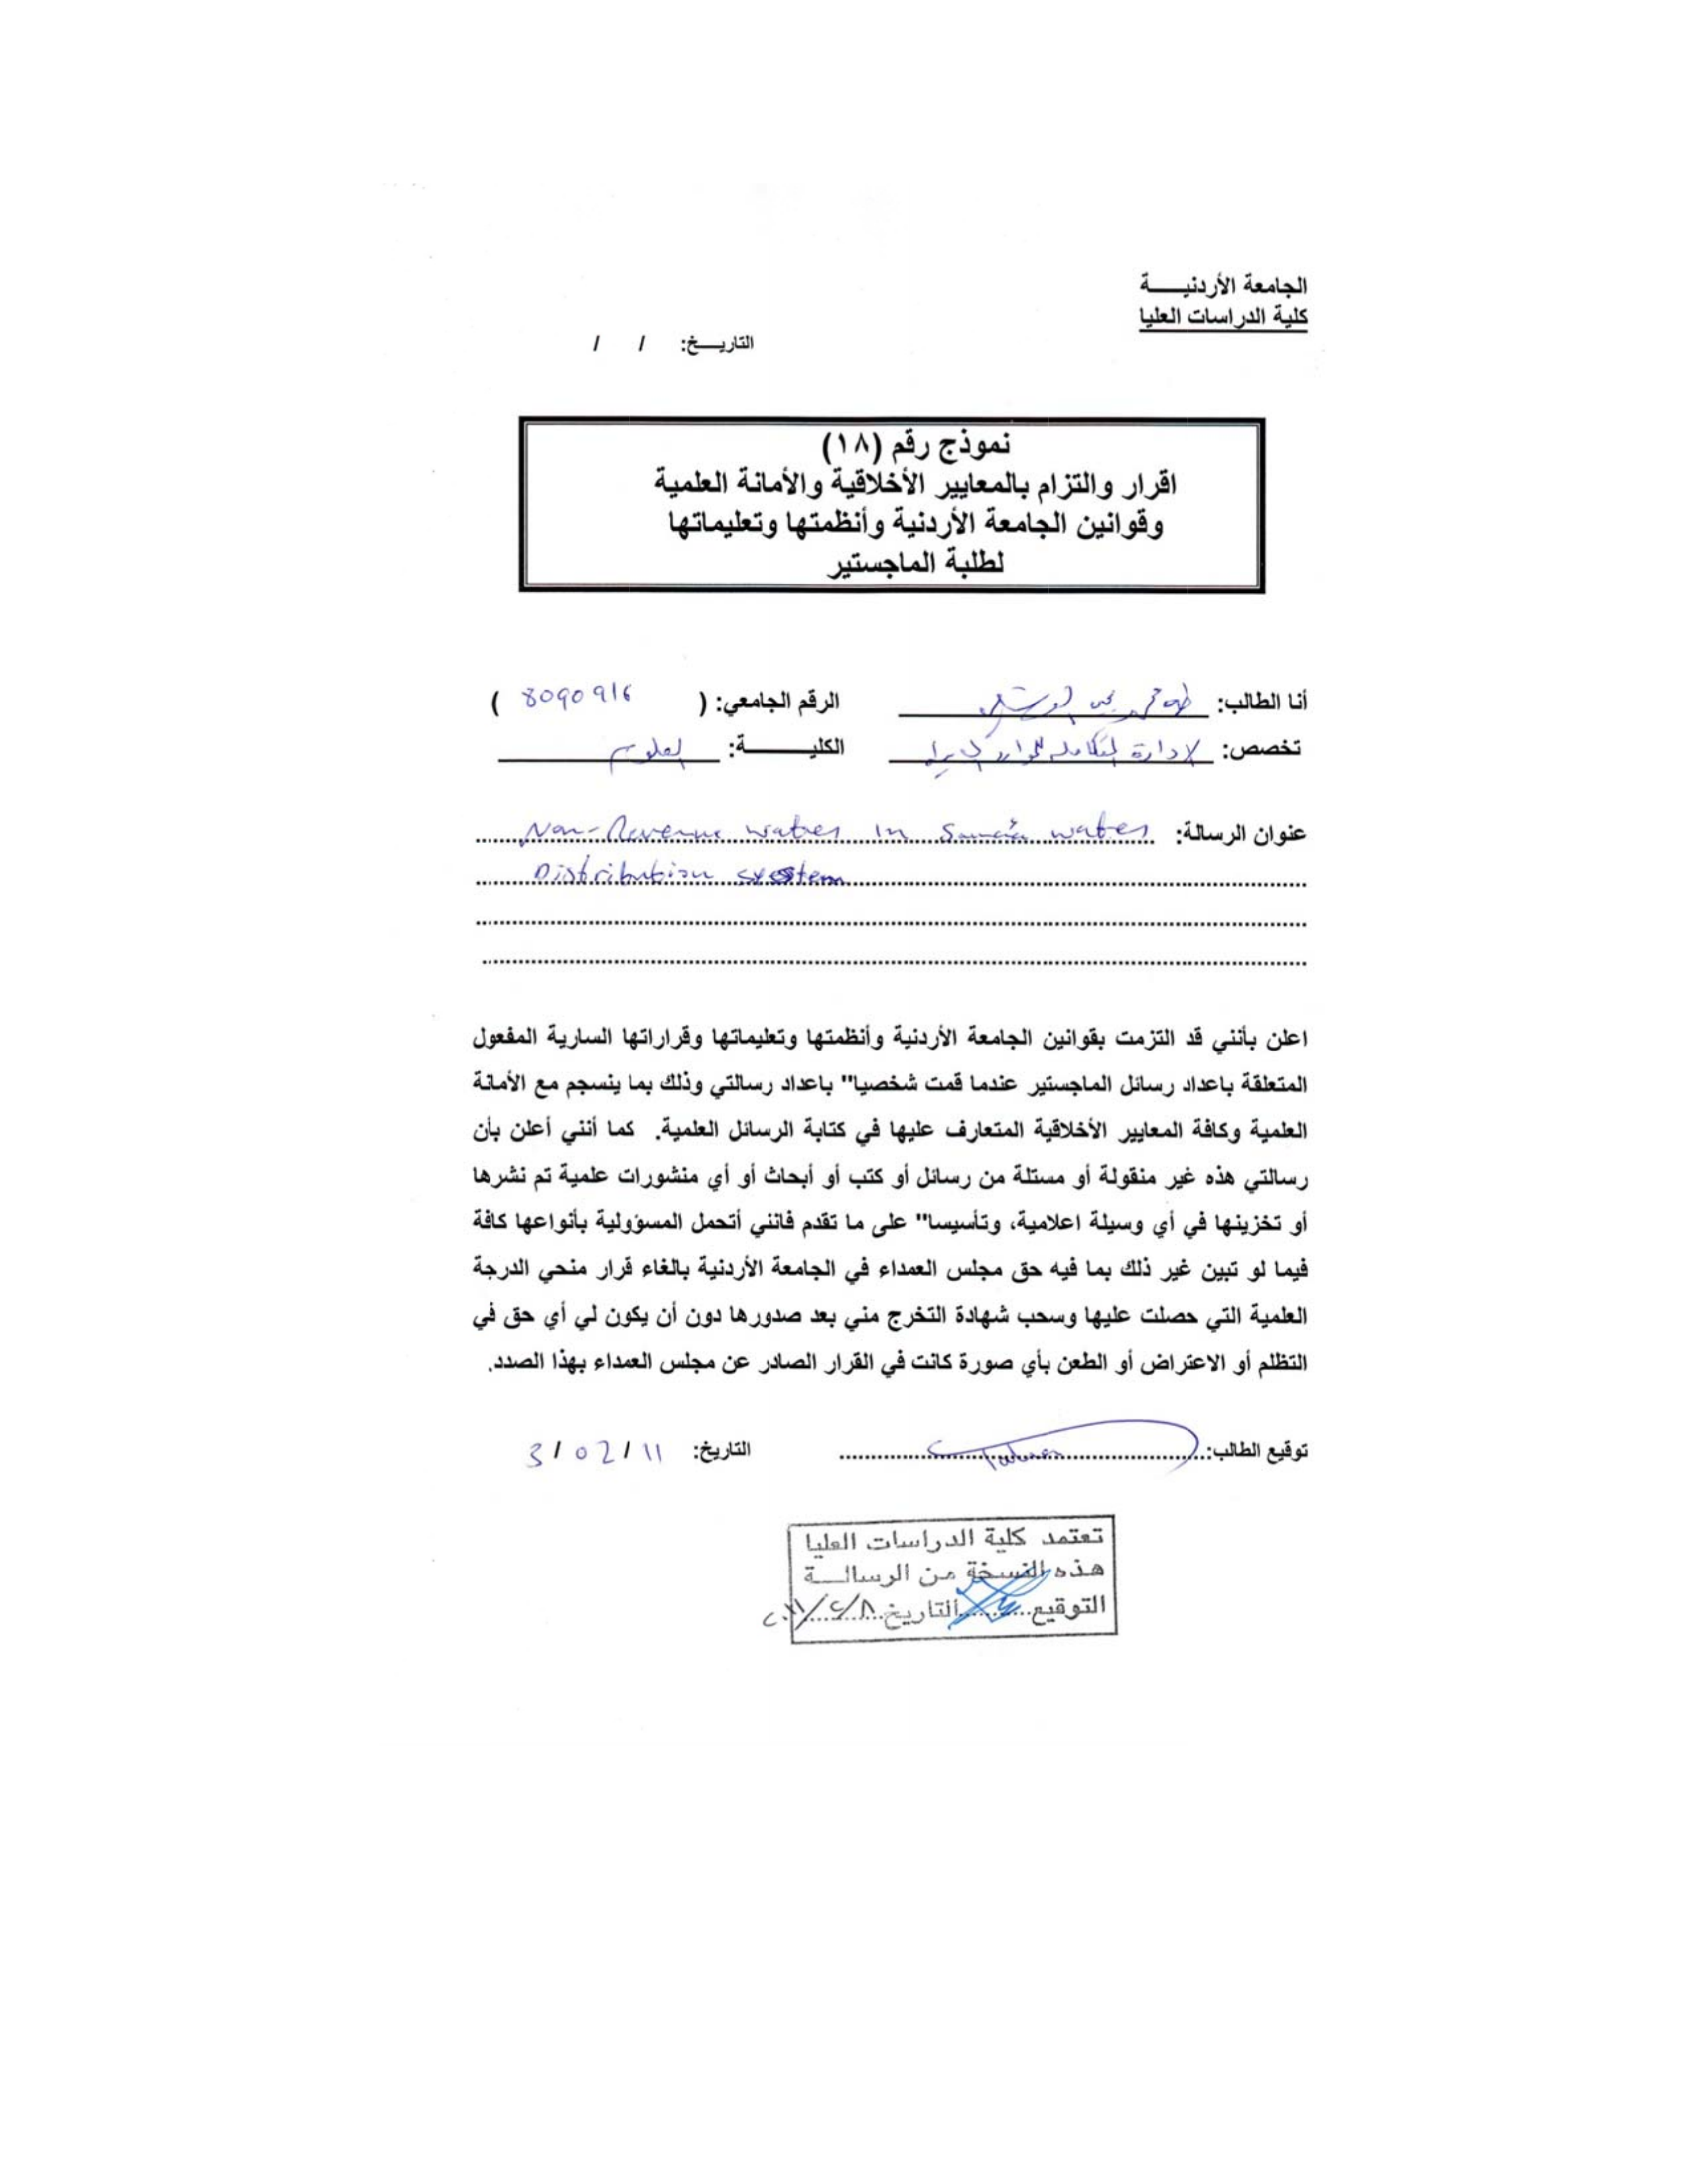 الجامعة الأردنيـــة
كلية الدراسات العليا
التاريـــخ: / /
نموذج رقم (١٨)
اقرار والتزام بالمعايير الأخلاقية والأمانة العلمية
وقوانين الجامعة الأردنية وأنظمتها وتعليماتها
لطلبة الماجستير
أنا الطالب: طه محمد يحيى الرقم الجامعي: ( 8090916 )
تخصص: الادارة المتكاملة للموارد الكليـــــــة: العلوم
عنوان الرسالة: Non-Revenue water in Sana'a water
Distribution system
اعلن بأنني قد التزمت بقوانين الجامعة الأردنية وأنظمتها وتعليماتها وقراراتها السارية المفعول
المتعلقة باعداد رسائل الماجستير عندما قمت شخصيا" باعداد رسالتي وذلك بما ينسجم مع الأمانة
العلمية وكافة المعايير الأخلاقية المتعارف عليها في كتابة الرسائل العلمية. كما أنني أعلن بأن
رسالتي هذه غير منقولة أو مستلة من رسائل أو كتب أو أبحاث أو أي منشورات علمية تم نشرها
أو تخزينها في أي وسيلة اعلامية، وتأسيسا" على ما تقدم فانني أتحمل المسؤولية بأنواعها كافة
فيما لو تبين غير ذلك بما فيه حق مجلس العمداء في الجامعة الأردنية بالغاء قرار منحي الدرجة
العلمية التي حصلت عليها وسحب شهادة التخرج مني بعد صدورها دون أن يكون لي أي حق في
التظلم أو الاعتراض أو الطعن بأي صورة كانت في القرار الصادر عن مجلس العمداء بهذا الصدد.
توقيع الطالب: التاريخ: 3 / 02 / 11
تعتمد كلية الدراسات العليا
هذه النسخة من الرسالـــة
التوقيع التاريخ